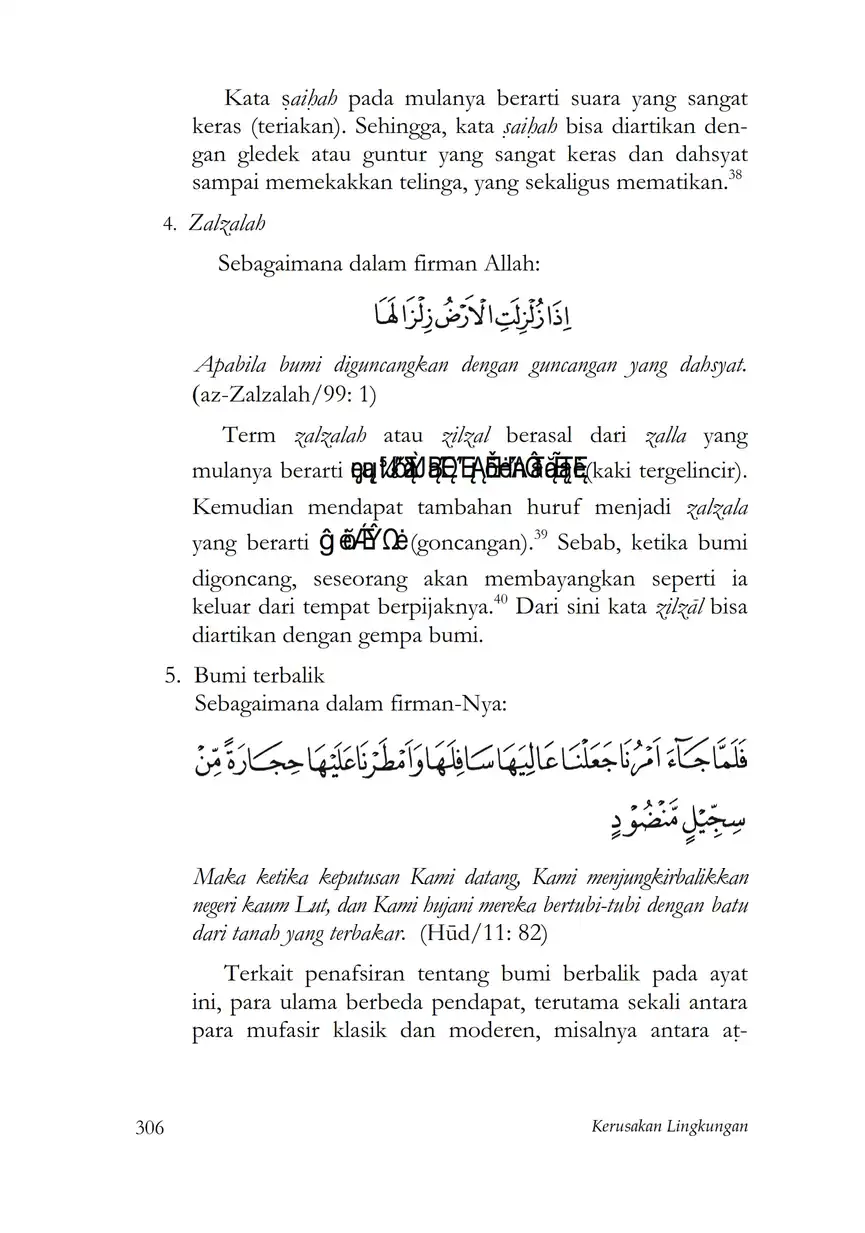 Kata ṣaiḥah pada mulanya berarti suara yang sangat
keras (teriakan). Sehingga, kata ṣaiḥah bisa diartikan den-
gan gledek atau guntur yang sangat keras dan dahsyat
sampai memekakkan telinga, yang sekaligus mematikan.38
4. Zalzalah
Sebagaimana dalam firman Allah:
اِذَا زُلْزِلَتِ الْاَرْضُ زِلْزَالَهَا
Apabila bumi diguncangkan dengan guncangan yang dahsyat.
(az-Zalzalah/99: 1)
Term zalzalah atau zilzal berasal dari zalla yang
mulanya berarti (kaki tergelincir).
Kemudian mendapat tambahan huruf menjadi zalzala
yang berarti (goncangan).39 Sebab, ketika bumi
digoncang, seseorang akan membayangkan seperti ia
keluar dari tempat berpijaknya.40 Dari sini kata zilzāl bisa
diartikan dengan gempa bumi.
5. Bumi terbalik
Sebagaimana dalam firman-Nya:
فَلَمَّا جَاۤءَ اَمْرُنَا جَعَلْنَا عَالِيَهَا سَافِلَهَا وَاَمْطَرْنَا عَلَيْهَا حِجَارَةً مِّنْ
سِجِّيْلٍ مَّنْضُوْدٍ
Maka ketika keputusan Kami datang, Kami menjungkirbalikkan
negeri kaum Lut, dan Kami hujani mereka bertubi-tubi dengan batu
dari tanah yang terbakar. (Hūd/11: 82)
Terkait penafsiran tentang bumi berbalik pada ayat
ini, para ulama berbeda pendapat, terutama sekali antara
para mufasir klasik dan moderen, misalnya antara aṭ-
306 Kerusakan Lingkungan